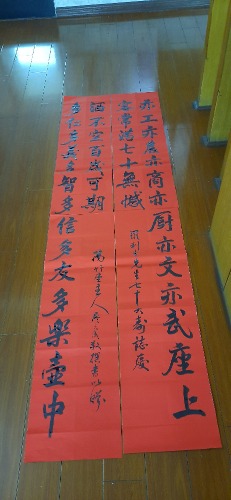 亦工亦農亦商亦厨亦文亦武座上
客常滿七十無憾
先生七十大壽誌慶
多仁多義多智多信多友多樂壺中
酒不空百歲可期
萬竹堂主人撰書以贈